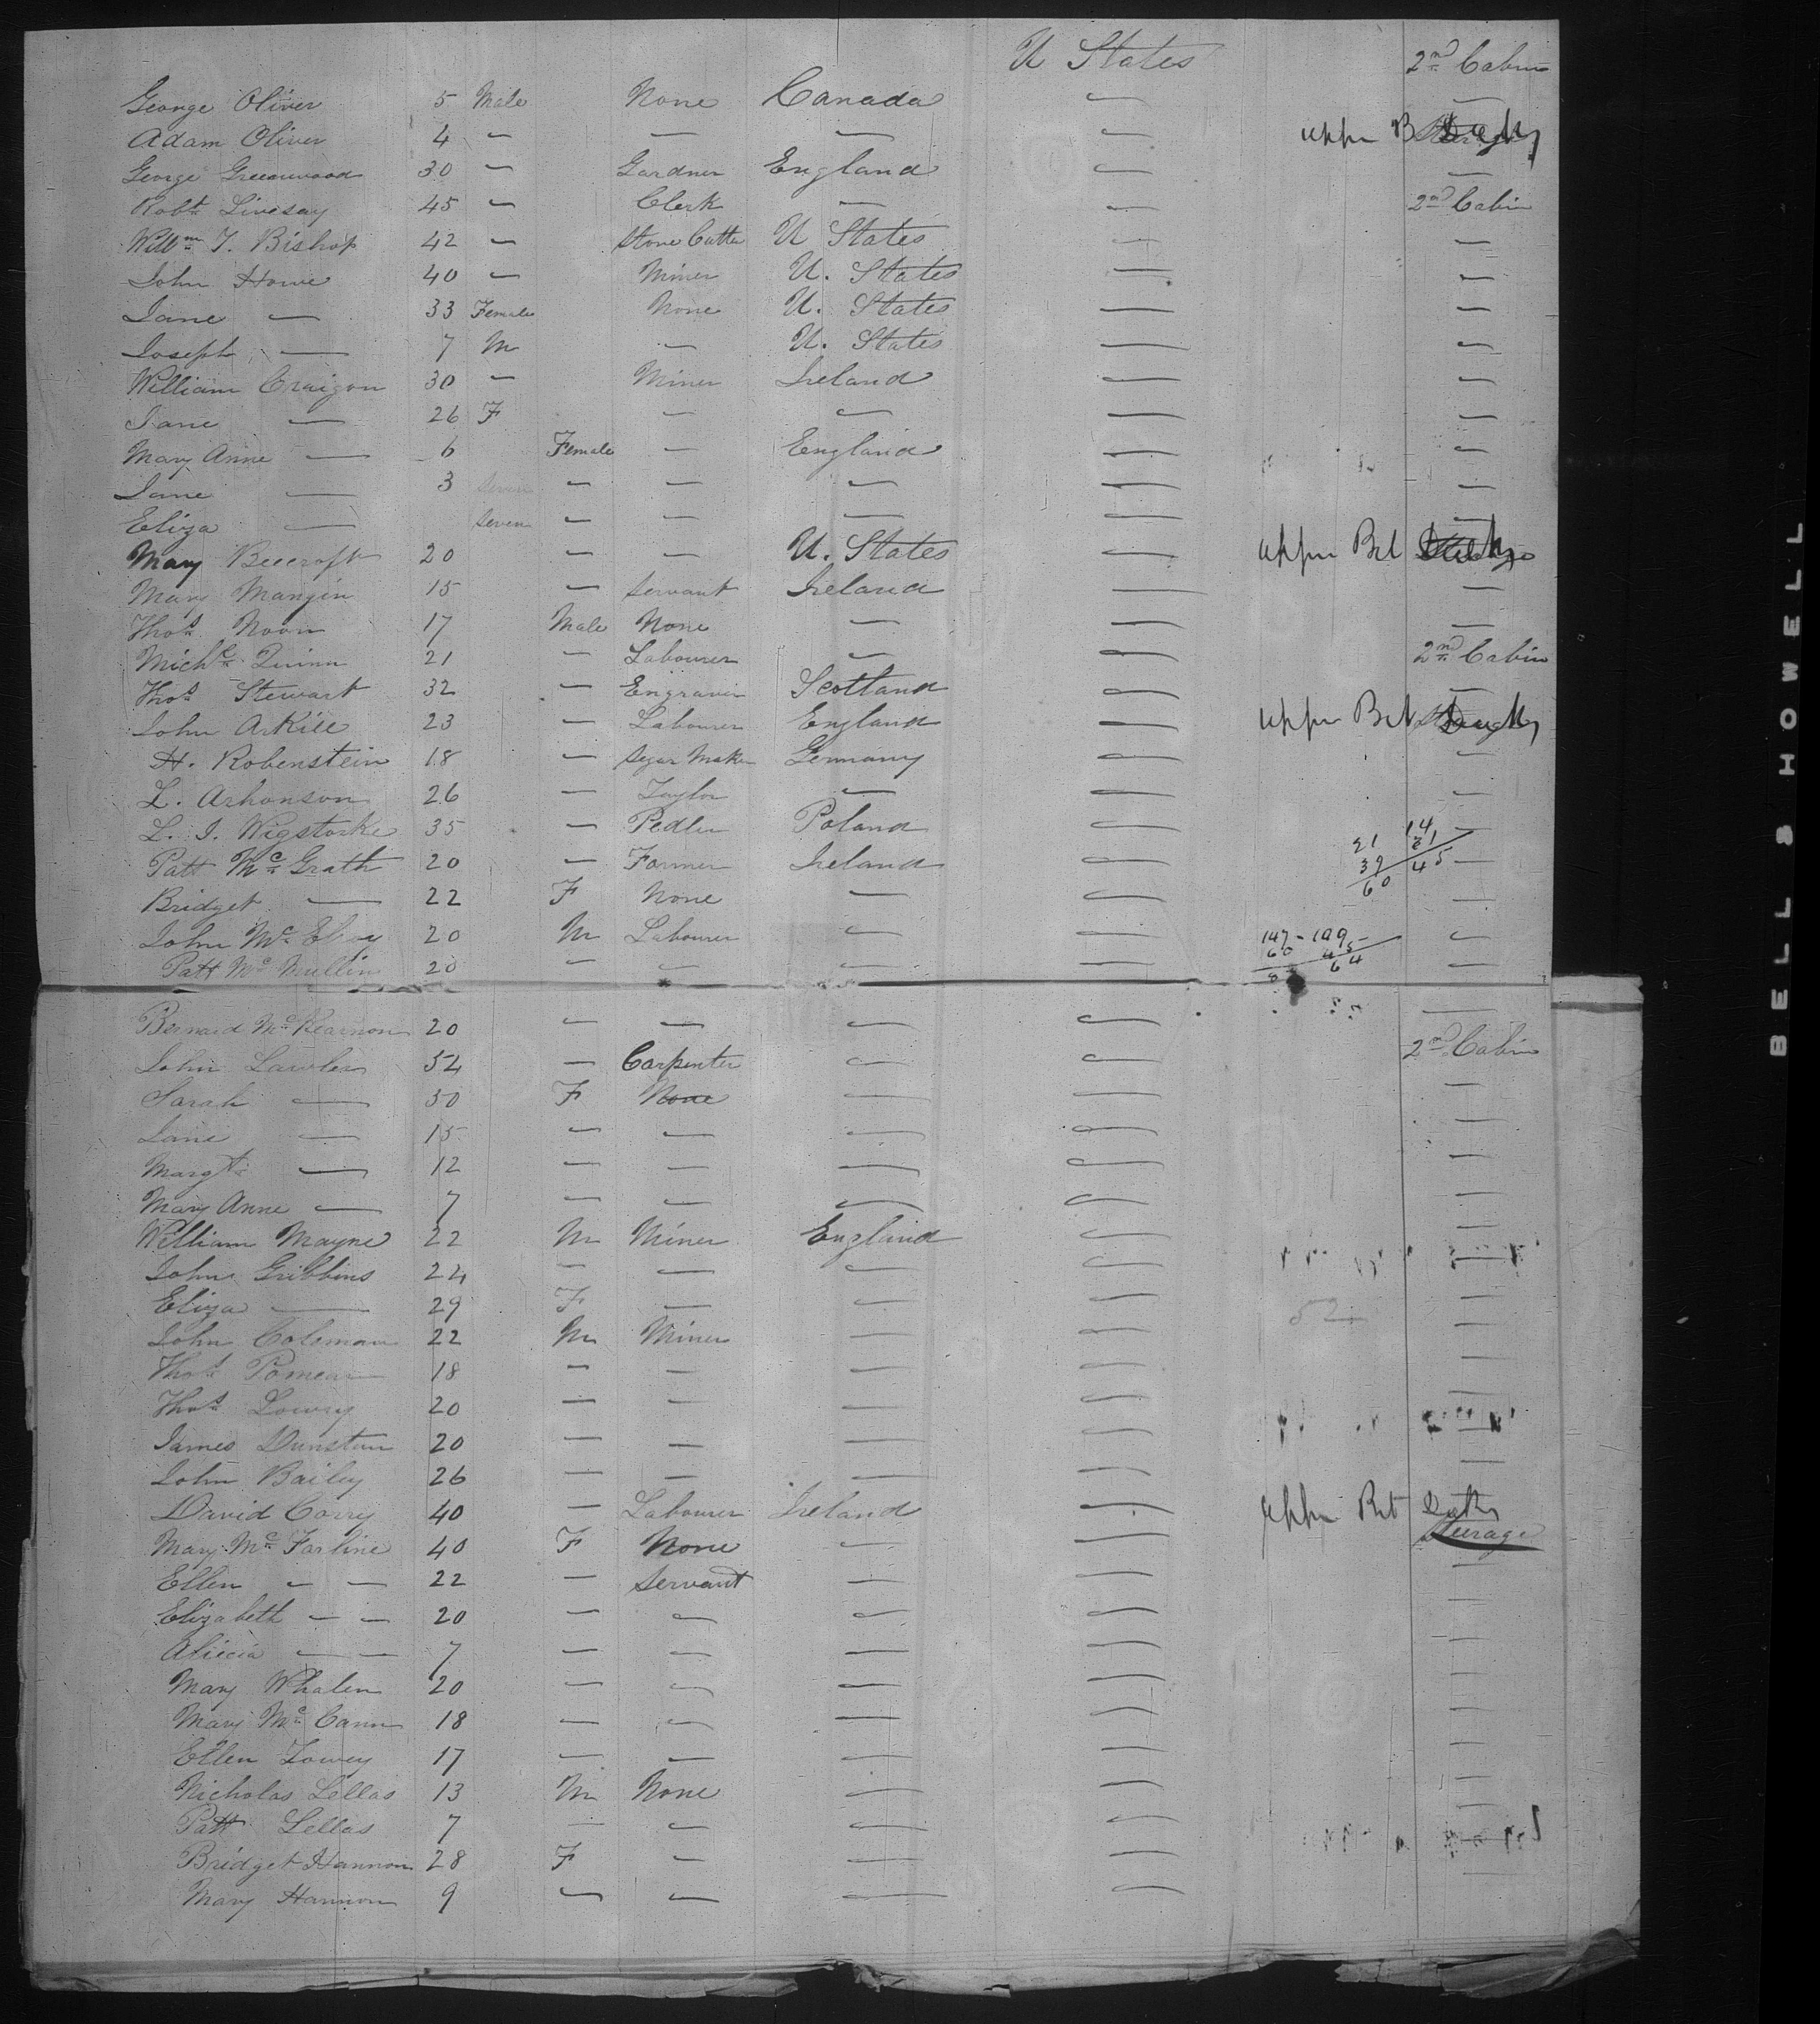 U States 2nd Cabin
George Oliver 5 Male None Canada — —
Adam Oliver 4 — — — — upper B
George Greenwood 30 — Gardner England — —
Robt Livesay 45 — Clerk — — 2nd Cabin
Willm T. Bishop 42 — Stone Cutter U States — —
John Howe 40 — Miner U. States — —
Jane — 33 Female None U. States — —
Joseph — 7 M — U. States — —
William Craigon 30 — Miner Ireland — —
Jane — 26 F — — — —
Mary Anne — 6 Female — England — —
Jane — 3 Seven — — — — —
Eliza — Seven — — — — —
Mary Beecroft 20 — — U. States — upper Bet
Mary Mangin 15 — Servant Ireland — —
Thos Noon 17 Male None — — —
Michl Quinn 21 — Labourer — — 2nd Cabin
Thos Stewart 32 — Engraver Scotland — —
John Arkill 23 — Labourer England — upper Bet
H. Robenstein 18 — Segar Maker Germany — —
L. Arhonson 26 — Taylor — — —
L. I. Wigstorke 35 — Pedler Poland — —
21 14
39 31
60 45
Patt McGrath 20 — Farmer Ireland — —
Bridget — 22 F None — — —
John McElroy 20 M Labourer — — —
147 - 109 -
60 45
64
Patt McMullin 20 — — — — —
Bernard McKearnon 20 — — — — —
John Lawler 54 — Carpenter — — 2nd Cabin
Sarah — 50 F None — — —
Jane — 15 — — — — —
Margt — 12 — — — — —
Mary Anne — 7 — — — — —
William Mayne 22 M Miner England — —
John Gribbins 24 — — — — —
Eliza — 29 F — — — —
52
John Coleman 22 M Miner — — —
Thos 18 — — — — —
Thos Lowry 20 — — — — —
James Dunstan 20 — — — — —
John Bailey 26 — — — — —
David Corry 40 — Labourer Ireland — upper Bet Decks
Mary McFarline 40 F None — — Steerage
Ellen — — 22 — Servant — — —
Elizabeth — — 20 — — — — —
Alicia — — 7 — — — — —
Mary Whalen 20 — — — — —
Mary McCann 18 — — — — —
Ellen Towey 17 — — — — —
Nicholas Lellas 13 M None — — —
Patt Lellas 7 — — — — —
Bridget Hannon 28 F — — — —
Mary Hannon 9 — — — —
BELL & HOWELL